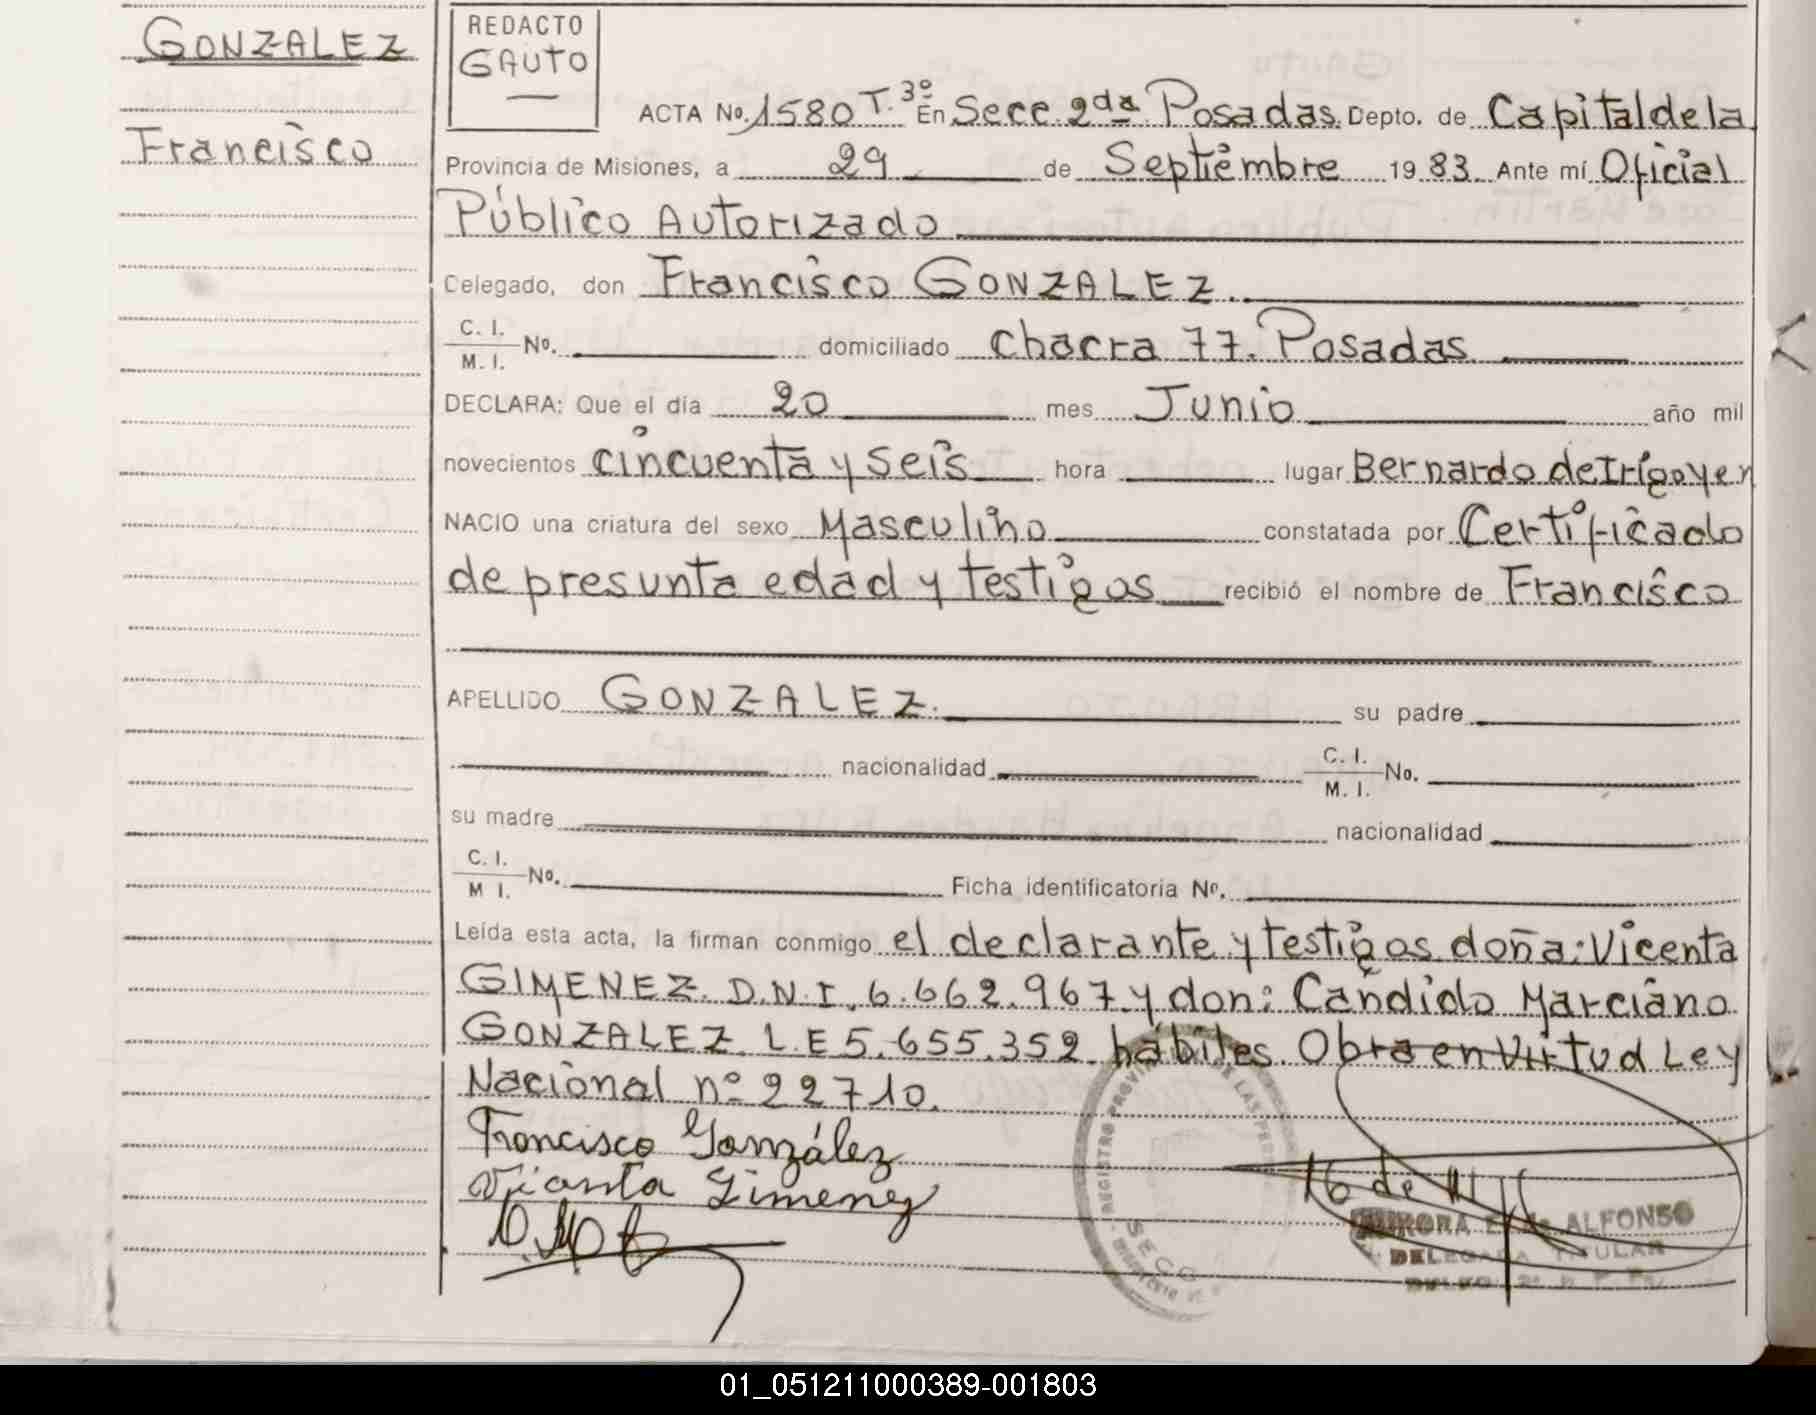 GONZALEZ
Francisco
REDACTO
GAUTO
ACTA No. 1580 T. 3º En Secc. 2da Posadas. Depto. de Capital de la
Provincia de Misiones, a 29 de Septiembre 19 83. Ante mí Oficial
Público Autorizado
Celegado, don Francisco GONZALEZ.
C. I.
M. I. No. domiciliado Chacra 77. Posadas
DECLARA: Que el día 20 mes Junio año mil
novecientos cincuenta y seis hora lugar Bernardo de Irigoyen
NACIO una criatura del sexo Masculino constatada por Certificado
de presunta edad y testigos recibió el nombre de Francisco
APELLIDO GONZALEZ. su padre
nacionalidad C. I.
M. I. No.
su madre nacionalidad
C. I.
M I. No. Ficha identificatoria No.
Leída esta acta, la firman conmigo el declarante y testigos doña: Vicenta
GIMENEZ. D.N.I. 6.662.967 y don: Candido Marciano
GONZALEZ. L.E 5.655.352. hábiles. Obra en Virtud Ley
Nacional nº 22710.
Francisco González
Vicenta Gimenez
REGISTRO PROVINCIAL DE LAS PERSONAS
SECC
AURORA E. de ALFONSO
DELEGADA TITULAR
01_051211000389-001803